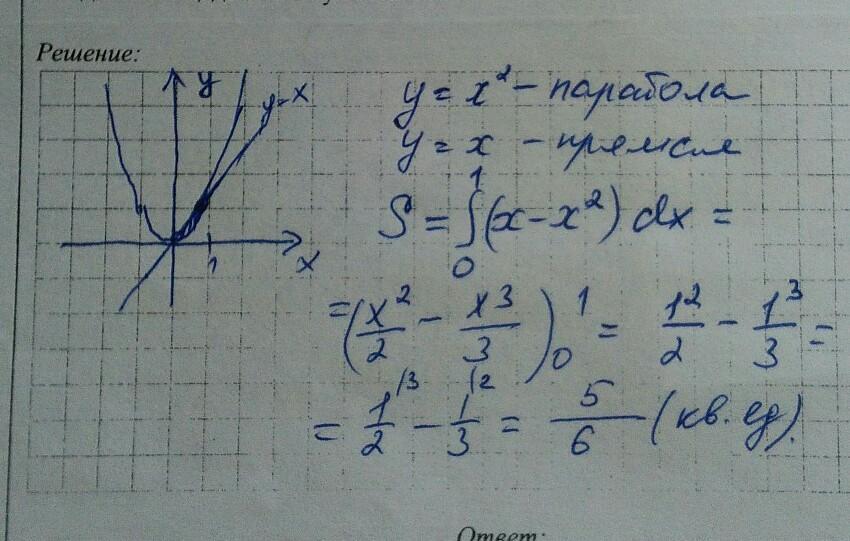 Решение:
y
y=x
1
x
y = x² - парабола
y = x - прямая
S = ∫₀¹ (x - x²) dx =
= (x²/2 - x³/3)₀¹ = 1²/2 - 1³/3 =
= 1/2 \3 - 1/3 \2 = 5/6 (кв. ед).
Ответ: